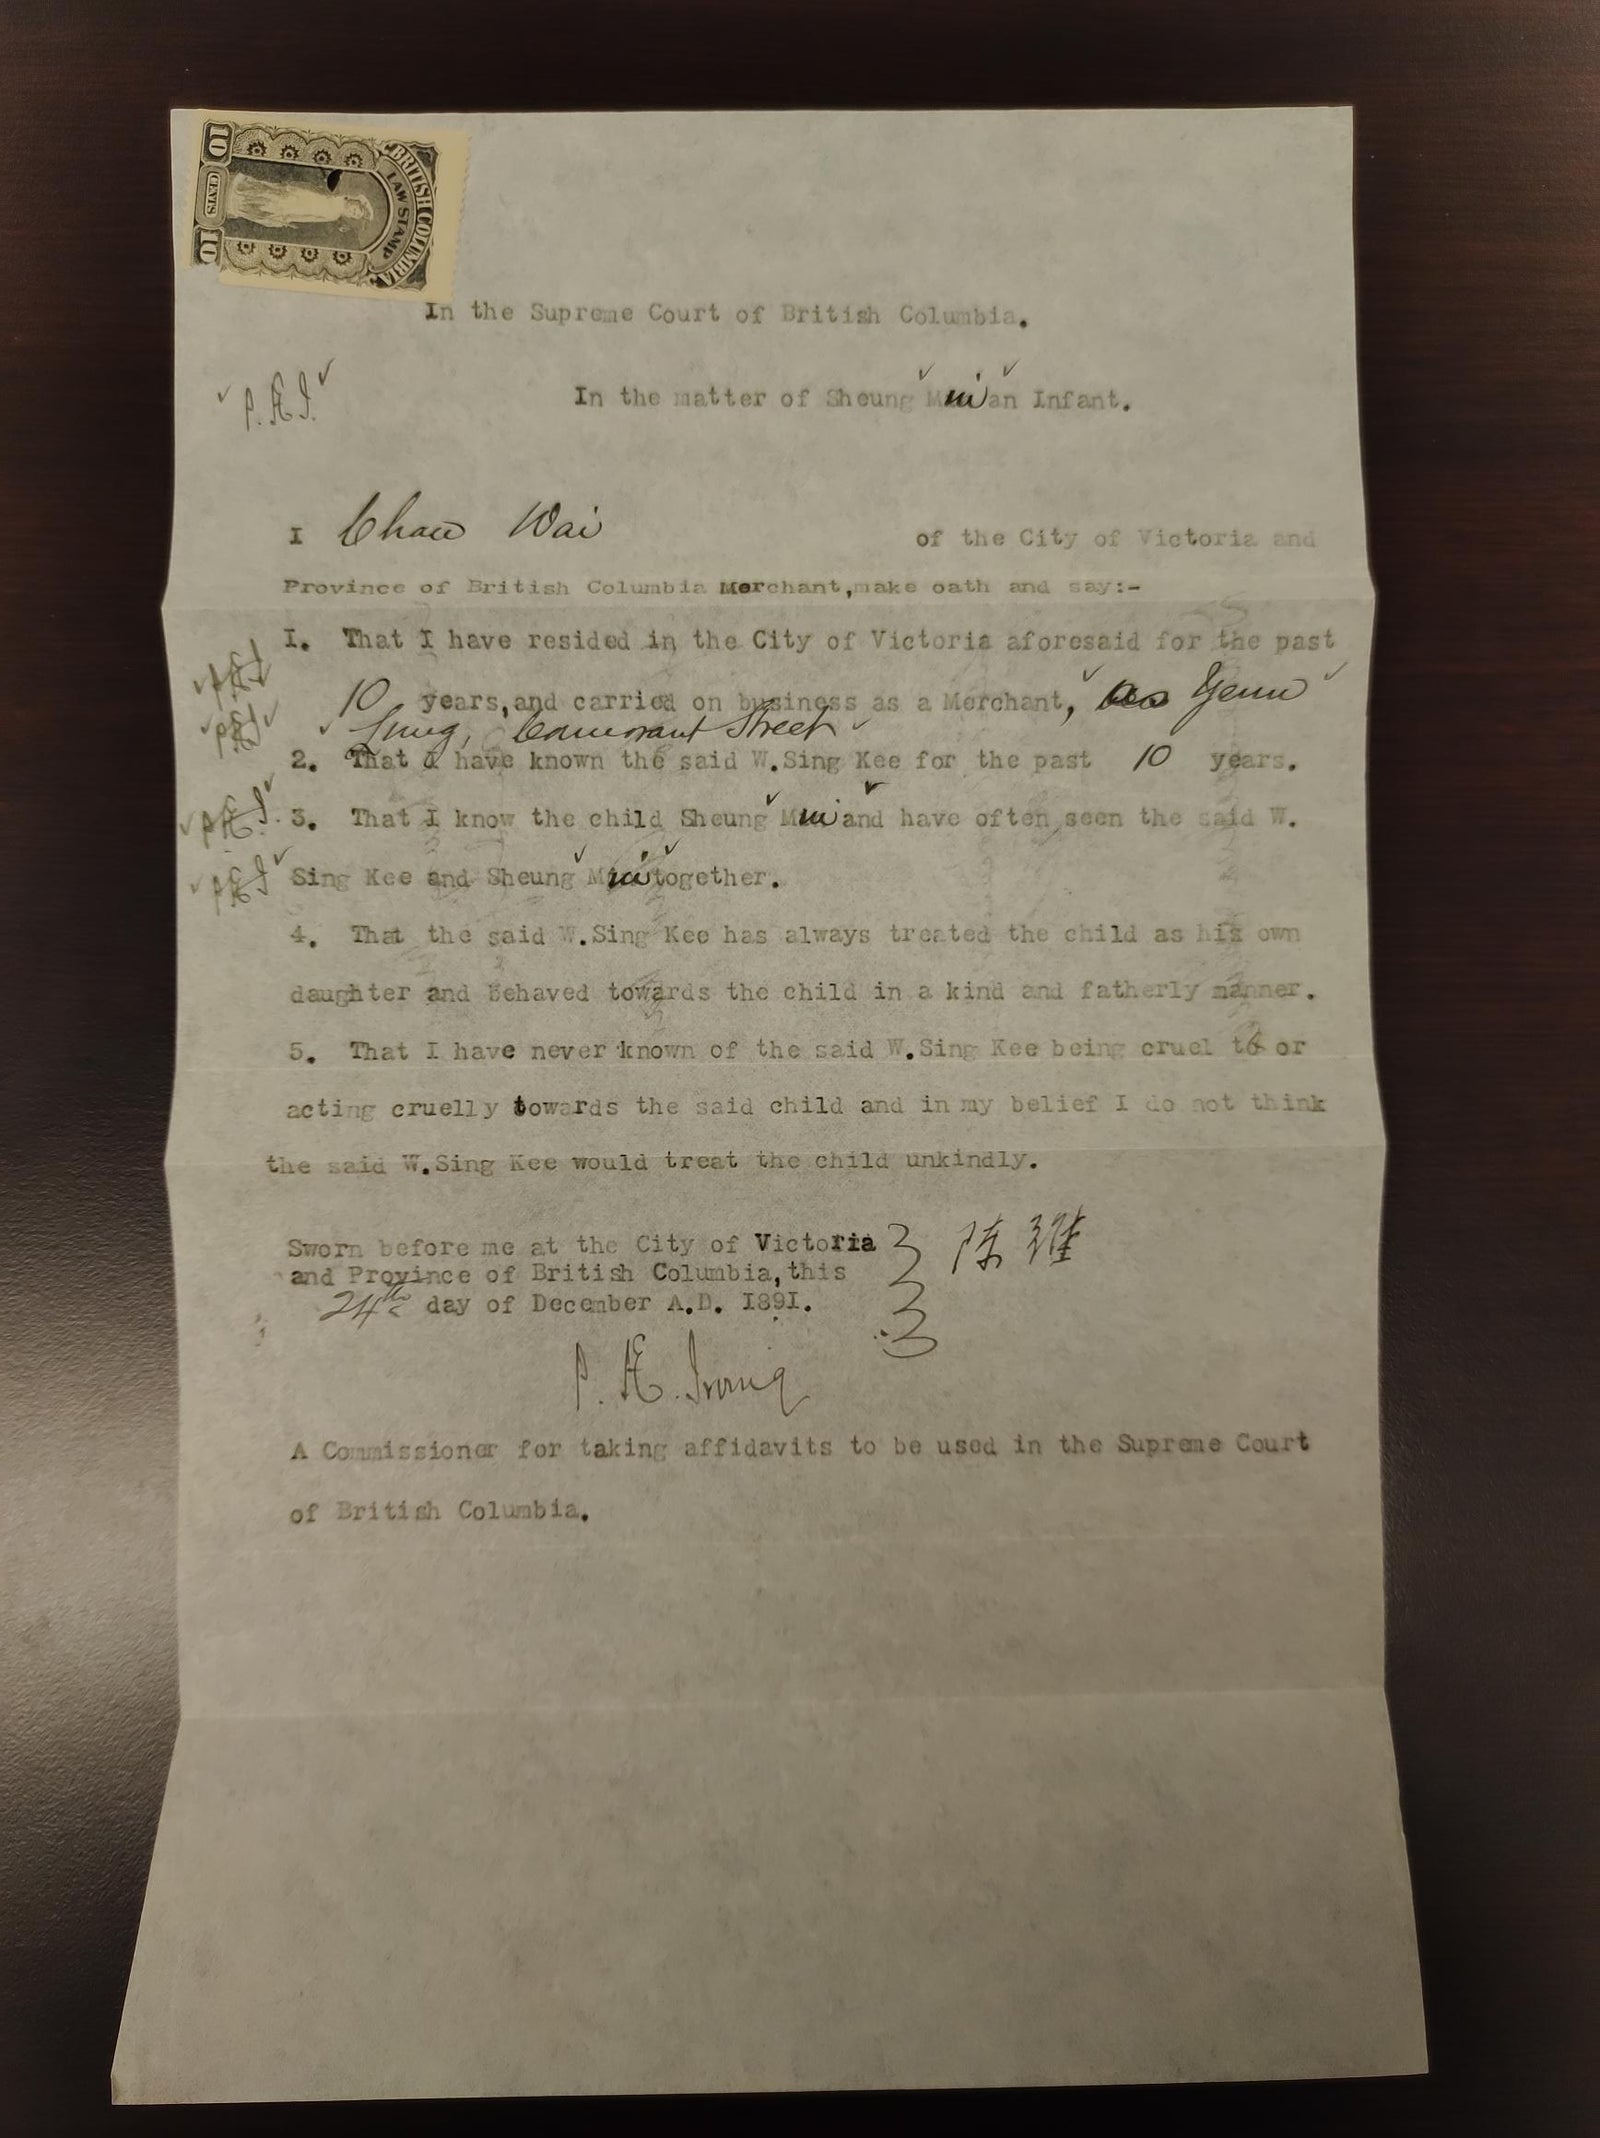 BRITISH COLUMBIA
LAW STAMP
10 CENTS 10
In the Supreme Court of British Columbia.
P.Æ.I.
In the matter of Sheung Mui an Infant.
I Chan Wai of the City of Victoria and
Province of British Columbia Merchant, make oath and say:-
1. That I have resided in the City of Victoria aforesaid for the past
10 years, and carried on business as a Merchant, as Yenn
Lung, Cormorant Street
2. That I have known the said W.Sing Kee for the past 10 years.
3. That I know the child Sheung Mui and have often seen the said W.
Sing Kee and Sheung Mui together.
4. That the said W.Sing Kee has always treated the child as his own
daughter and behaved towards the child in a kind and fatherly manner.
5. That I have never known of the said W.Sing Kee being cruel to or
acting cruelly towards the said child and in my belief I do not think
the said W.Sing Kee would treat the child unkindly.
Sworn before me at the City of Victoria
and Province of British Columbia, this
24th day of December A.D. 1891.
陈維
P. Æ. Irving
A Commissioner for taking affidavits to be used in the Supreme Court
of British Columbia.